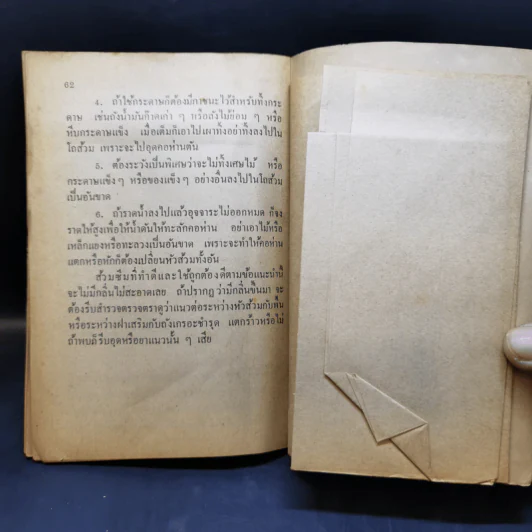 62
4. ถ้าใช้กระดาษก็ต้องมีภาชนะไว้สำหรับทิ้งกระ
ดาษ เช่นถังน้ำมันก๊าดเก่า ๆ หรือลังไม้ย่อม ๆ หรือ
หีบกระดาษแข็ง เมื่อเต็มก็เอาไปเผาทิ้งอย่าทิ้งลงไปใน
โถส้วม เพราะจะไปอุดคอห่านตัน
5. ต้องระวังเป็นพิเศษว่าจะไม่ทิ้งเศษไม้ หรือ
กระดาษแข็ง ๆ หรือของแข็ง ๆ อย่างอื่นลงไปในโถส้วม
เป็นอันขาด
6. ถ้าราดน้ำลงไปแล้วอุจจาระไม่ออกหมด ก็จง
ราดให้สูงเพื่อให้น้ำดันให้ทะลักคอห่าน อย่าเอาไม้หรือ
เหล็กแยงหรือทะลวงเป็นอันขาด เพราะจะทำให้คอห่าน
แตกหรือหักก็ต้องเปลี่ยนหัวส้วมทั้งอัน
ส้วมซึมที่ทำดีและใช้ถูกต้องดีตามข้อแนะนำนี้
จะไม่มีกลิ่นไม่สะอาดเลย ถ้าปรากฏว่ามีกลิ่นขึ้นมา จะ
ต้องรีบสำรวจตรวจตราดูว่าแนวต่อระหว่างหัวส้วมกับพื้น
หรือระหว่างฝาเสริมกับถังเกรอะชำรุด แตกร้าวหรือไม่
ถ้าพบก็รีบอุดหรือยาแนวนั้น ๆ เสีย